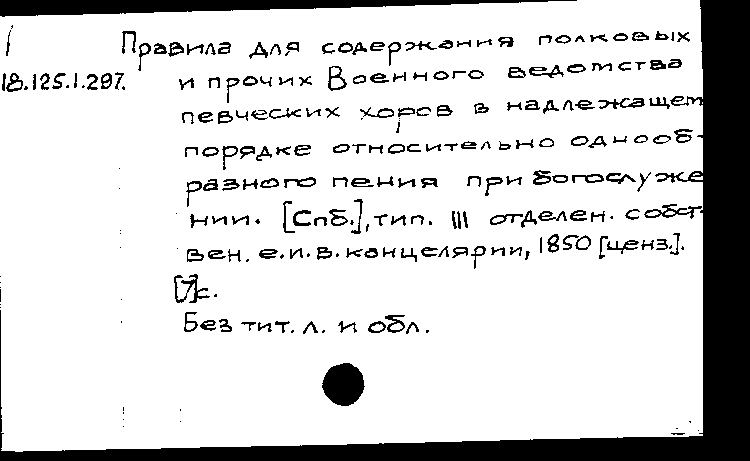 Правила для содержания полковых
18.125.1.297. и прочих Военного ведомства
певческих хоров в надлежащем
порядке относительно однооб-
разного пения при богослуже
нии. [Спб.], тип. III отделен. собст-
вен. е.и.в. канцелярии, 1850 [ценз.].
[7]с.
Без тит. л. и обл.